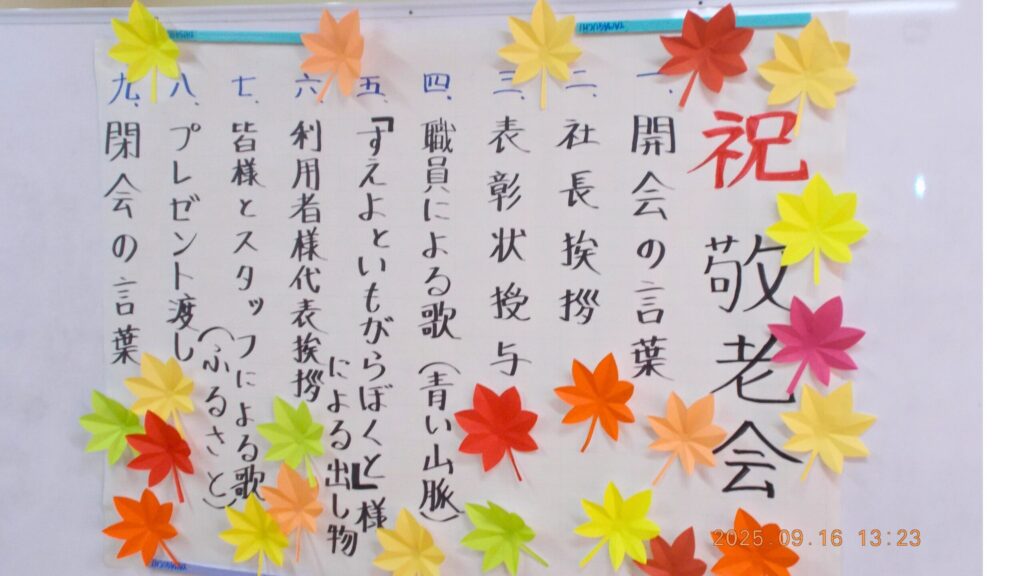 祝 敬老会
一、開会の言葉
二、社長挨拶
三、表彰状授与
四、職員による歌(青い山脈)
五、『すえよといもがらぼくと』様
による出し物
六、利用者様代表挨拶
七、皆様とスタッフによる歌
(ふるさと)
八、プレゼント渡し
九、閉会の言葉
2025.09.16 13:23